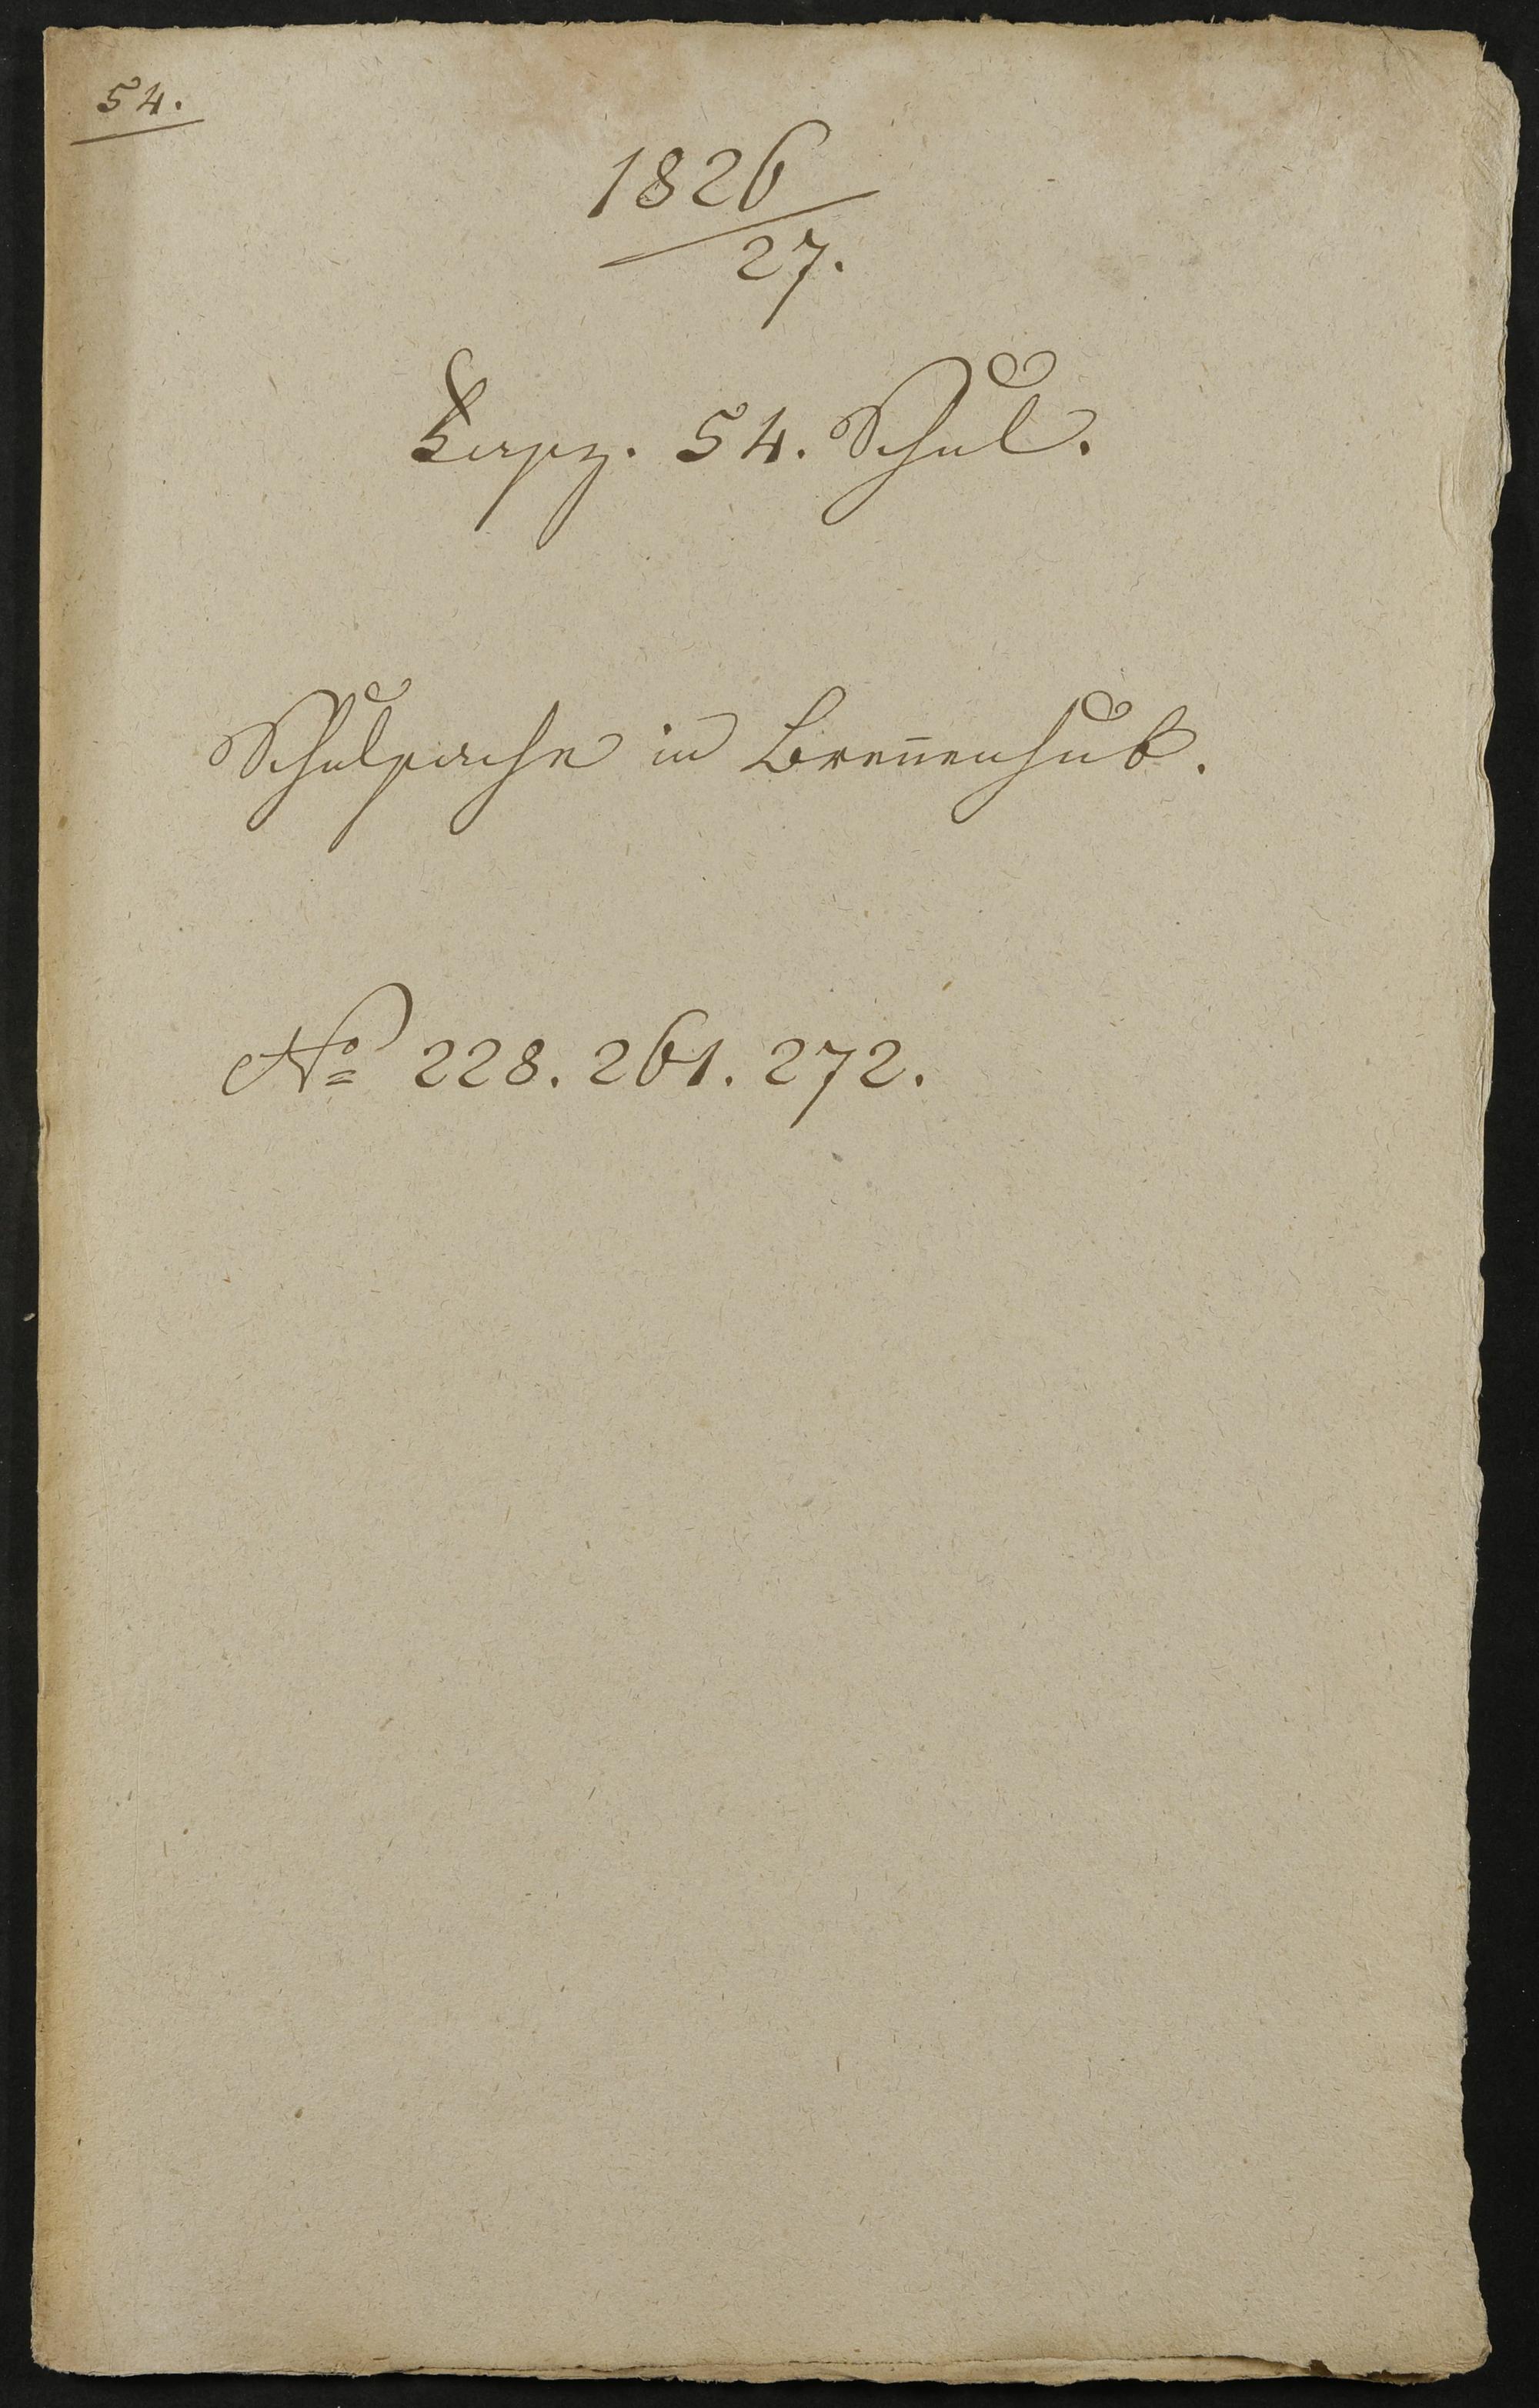 54.
1826
27.
Fasz. 54. Schul.
Schulsache in Brennenhub.
No 228. 261. 272.